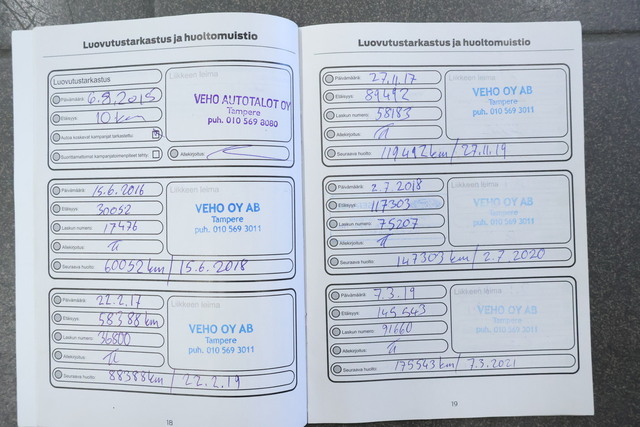 Luovutustarkastus ja huoltomuistio
Luovutustarkastus
Liikkeen leima
Päivämäärä: 6.8.2015
Etäisyys: 10 km
Autoa koskevat kampanjat tarkastettu:
Suoritettavat kampanjatoimenpiteet tehty:
Allekirjoitus:
VEHO AUTOTALOT OY
Tampere
puh. 010 569 8080
Päivämäärä: 15.6.2016
Etäisyys: 30052
Laskun numero: 17476
Allekirjoitus:
Seuraava huolto: 60052 km / 15.6.2018
Liikkeen leima
VEHO OY AB
Tampere
puh. 010 569 3011
Päivämäärä: 22.2.17
Etäisyys: 58388 km
Laskun numero: 36800
Allekirjoitus:
Seuraava huolto: 88388 km / 22.2.19
Liikkeen leima
VEHO OY AB
Tampere
puh. 010 569 3011
18
Luovutustarkastus ja huoltomuistio
Päivämäärä: 27.11.17
Etäisyys: 89492
Laskun numero: 58183
Allekirjoitus:
Seuraava huolto: 119492 km / 27.11.19
Liikkeen leima
VEHO OY AB
Tampere
puh. 010 569 3011
Päivämäärä: 2.7.2018
Etäisyys: 117303
Laskun numero: 75207
Allekirjoitus:
Seuraava huolto: 147303 km / 2.7.2020
Liikkeen leima
VEHO OY AB
Tampere
puh. 010 569 3011
Päivämäärä: 7.3.19
Etäisyys: 145543
Laskun numero: 91660
Allekirjoitus:
Seuraava huolto: 175543 km / 7.3.2021
Liikkeen leima
VEHO OY AB
Tampere
puh. 010 569 3011
19